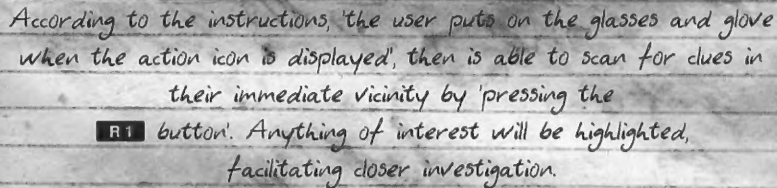 According to the instructions, 'the user puts on the glasses and glove
when the action icon is displayed', then is able to scan for clues in
their immediate vicinity by 'pressing the
R1 button'. Anything of interest will be highlighted,
facilitating closer investigation.